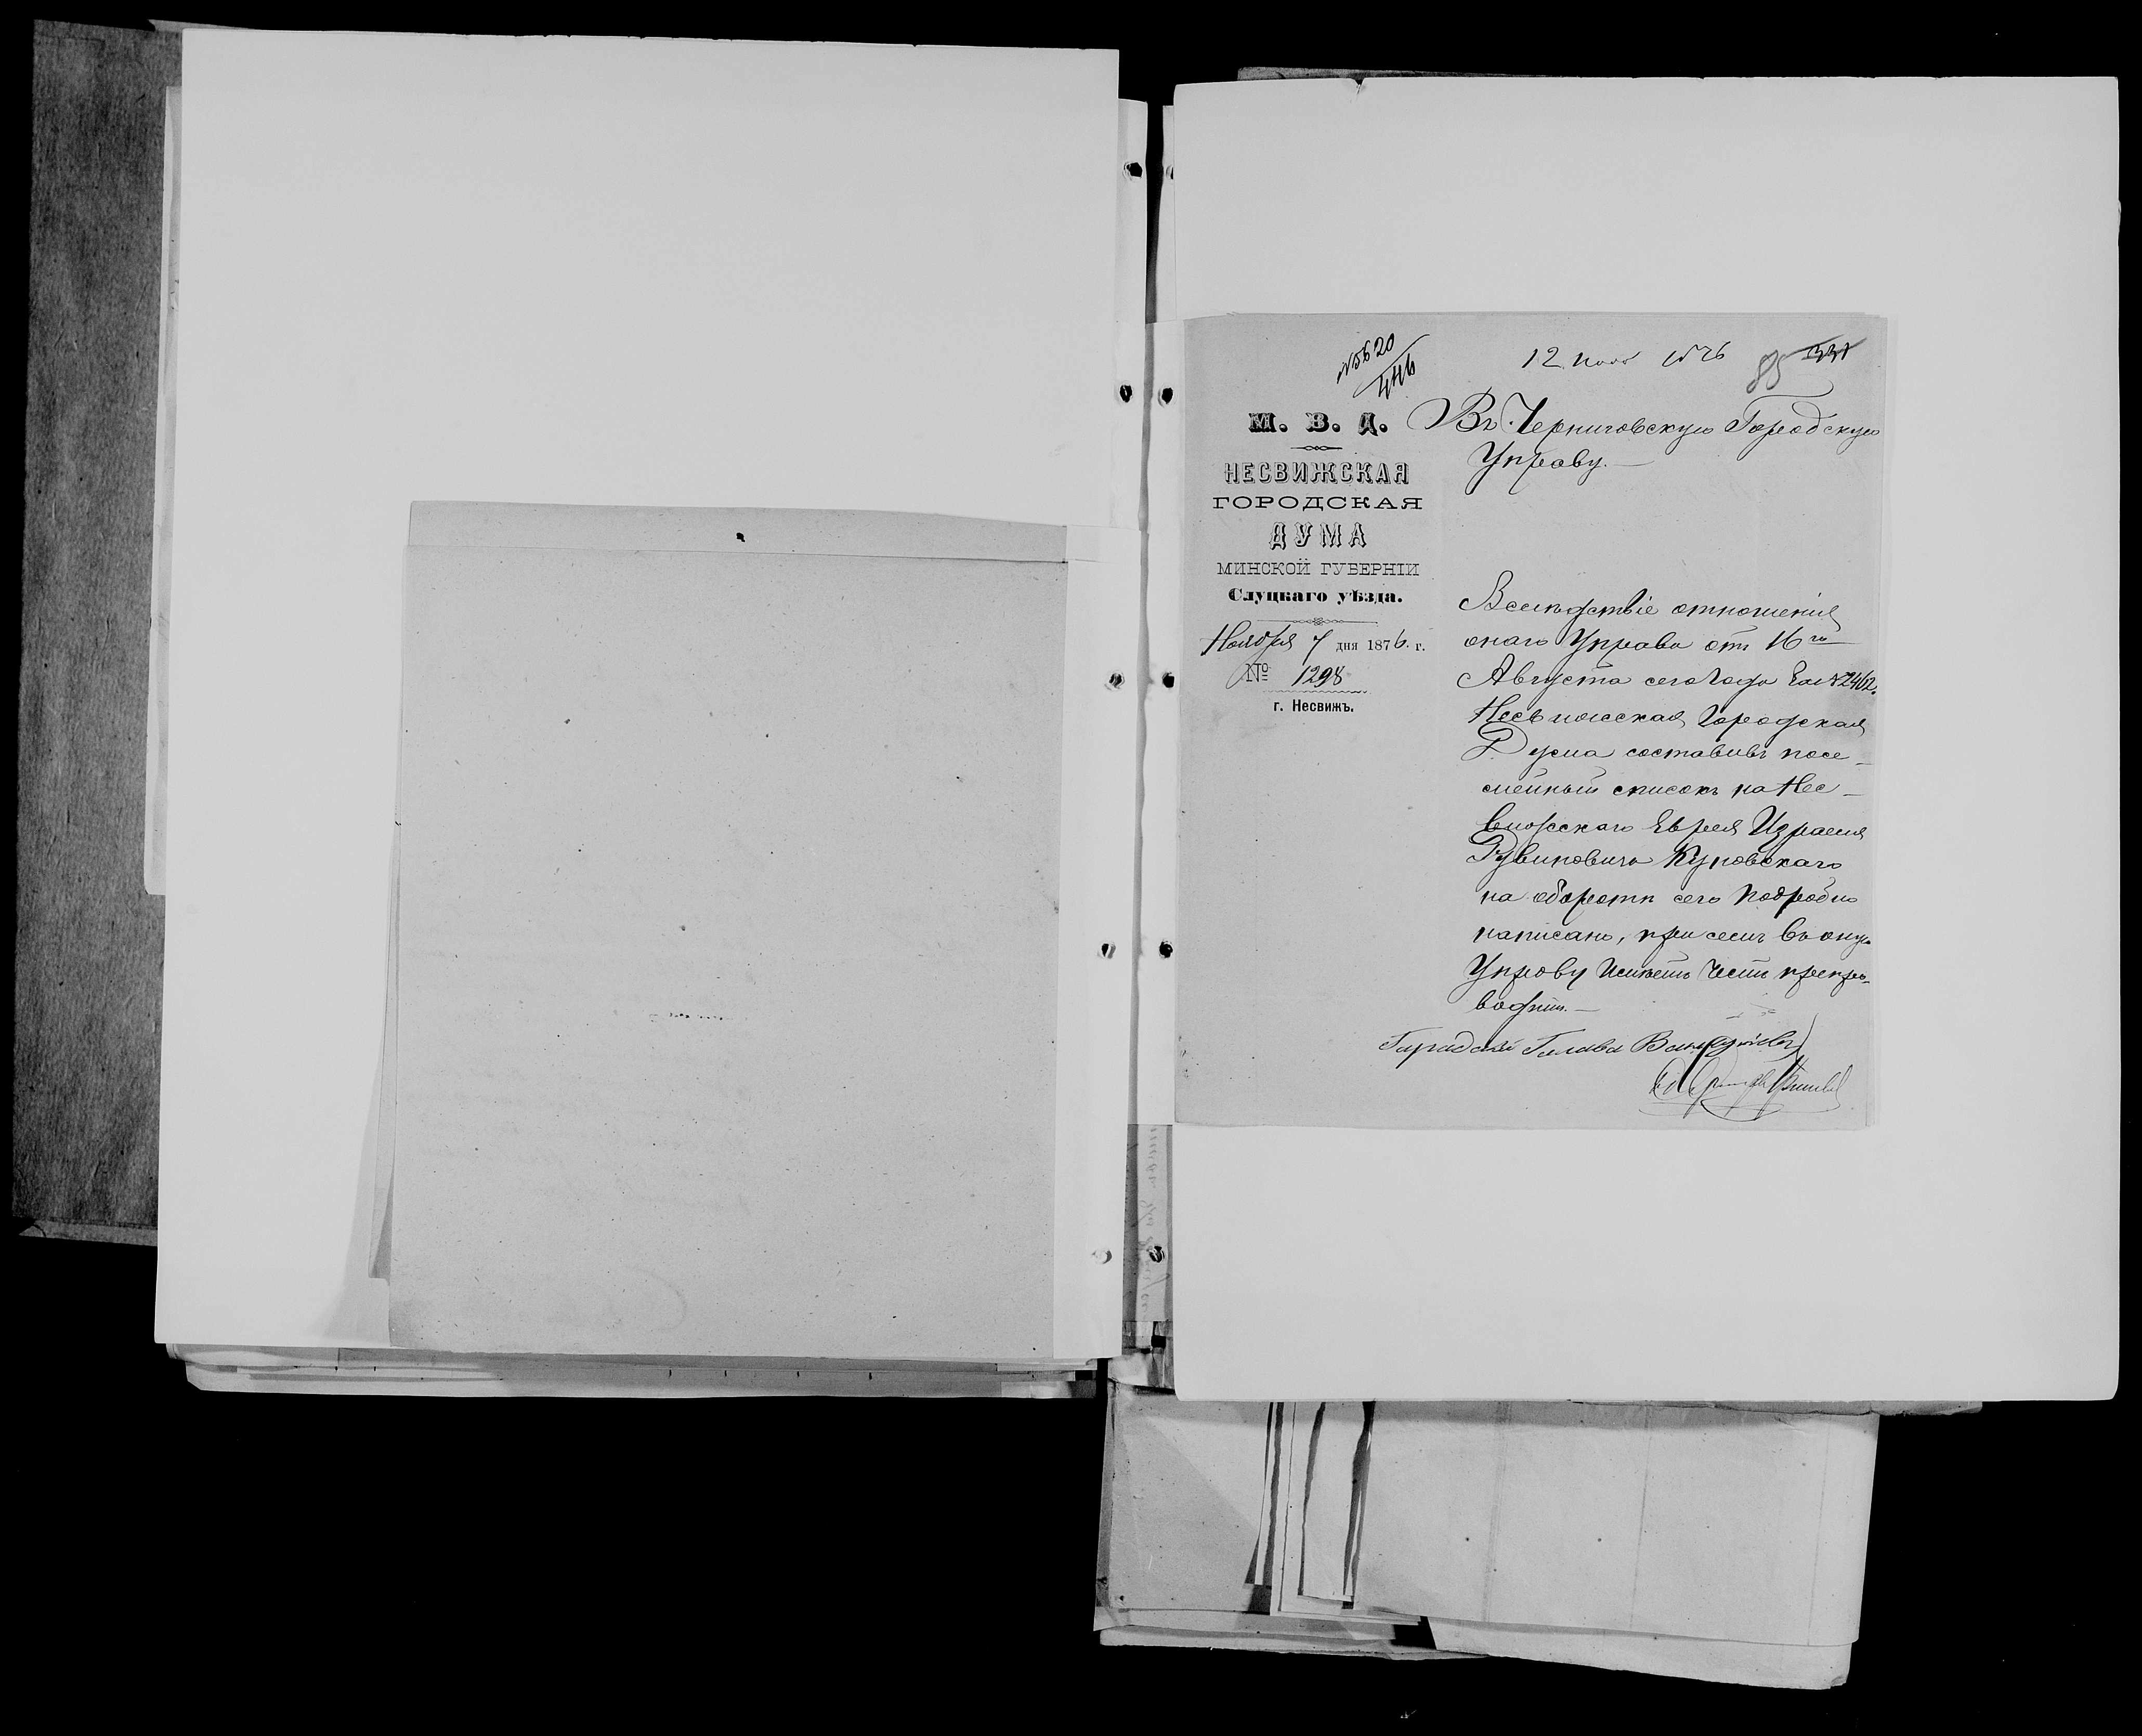 № 5620
446
12 Нояб 1876
85 331
М. В. Д.
НЕСВИЖСКАЯ
ГОРОДСКАЯ
ДУМА
МИНСКОЙ ГУБЕРНІИ
Слуцкаго уѣзда.
Ноября 7 дня 1876. г.
№ 1298
г. Несвижъ.
Въ Черниговскую Городскую
Управу.—
Вслѣдствіе отношенія
оной Управы отъ 16го
Августа сего Года за № 2462.
Несвижская Городская
Дума составивъ посе-
мейный списокъ на Нес-
вижскаго Еврея Израеля
Рувиновича Куновскаго
на оборотѣ сего подробно
написано, при семъ въ оную
Управу Имѣетъ Честь препро-
водить.—
Городской Голова